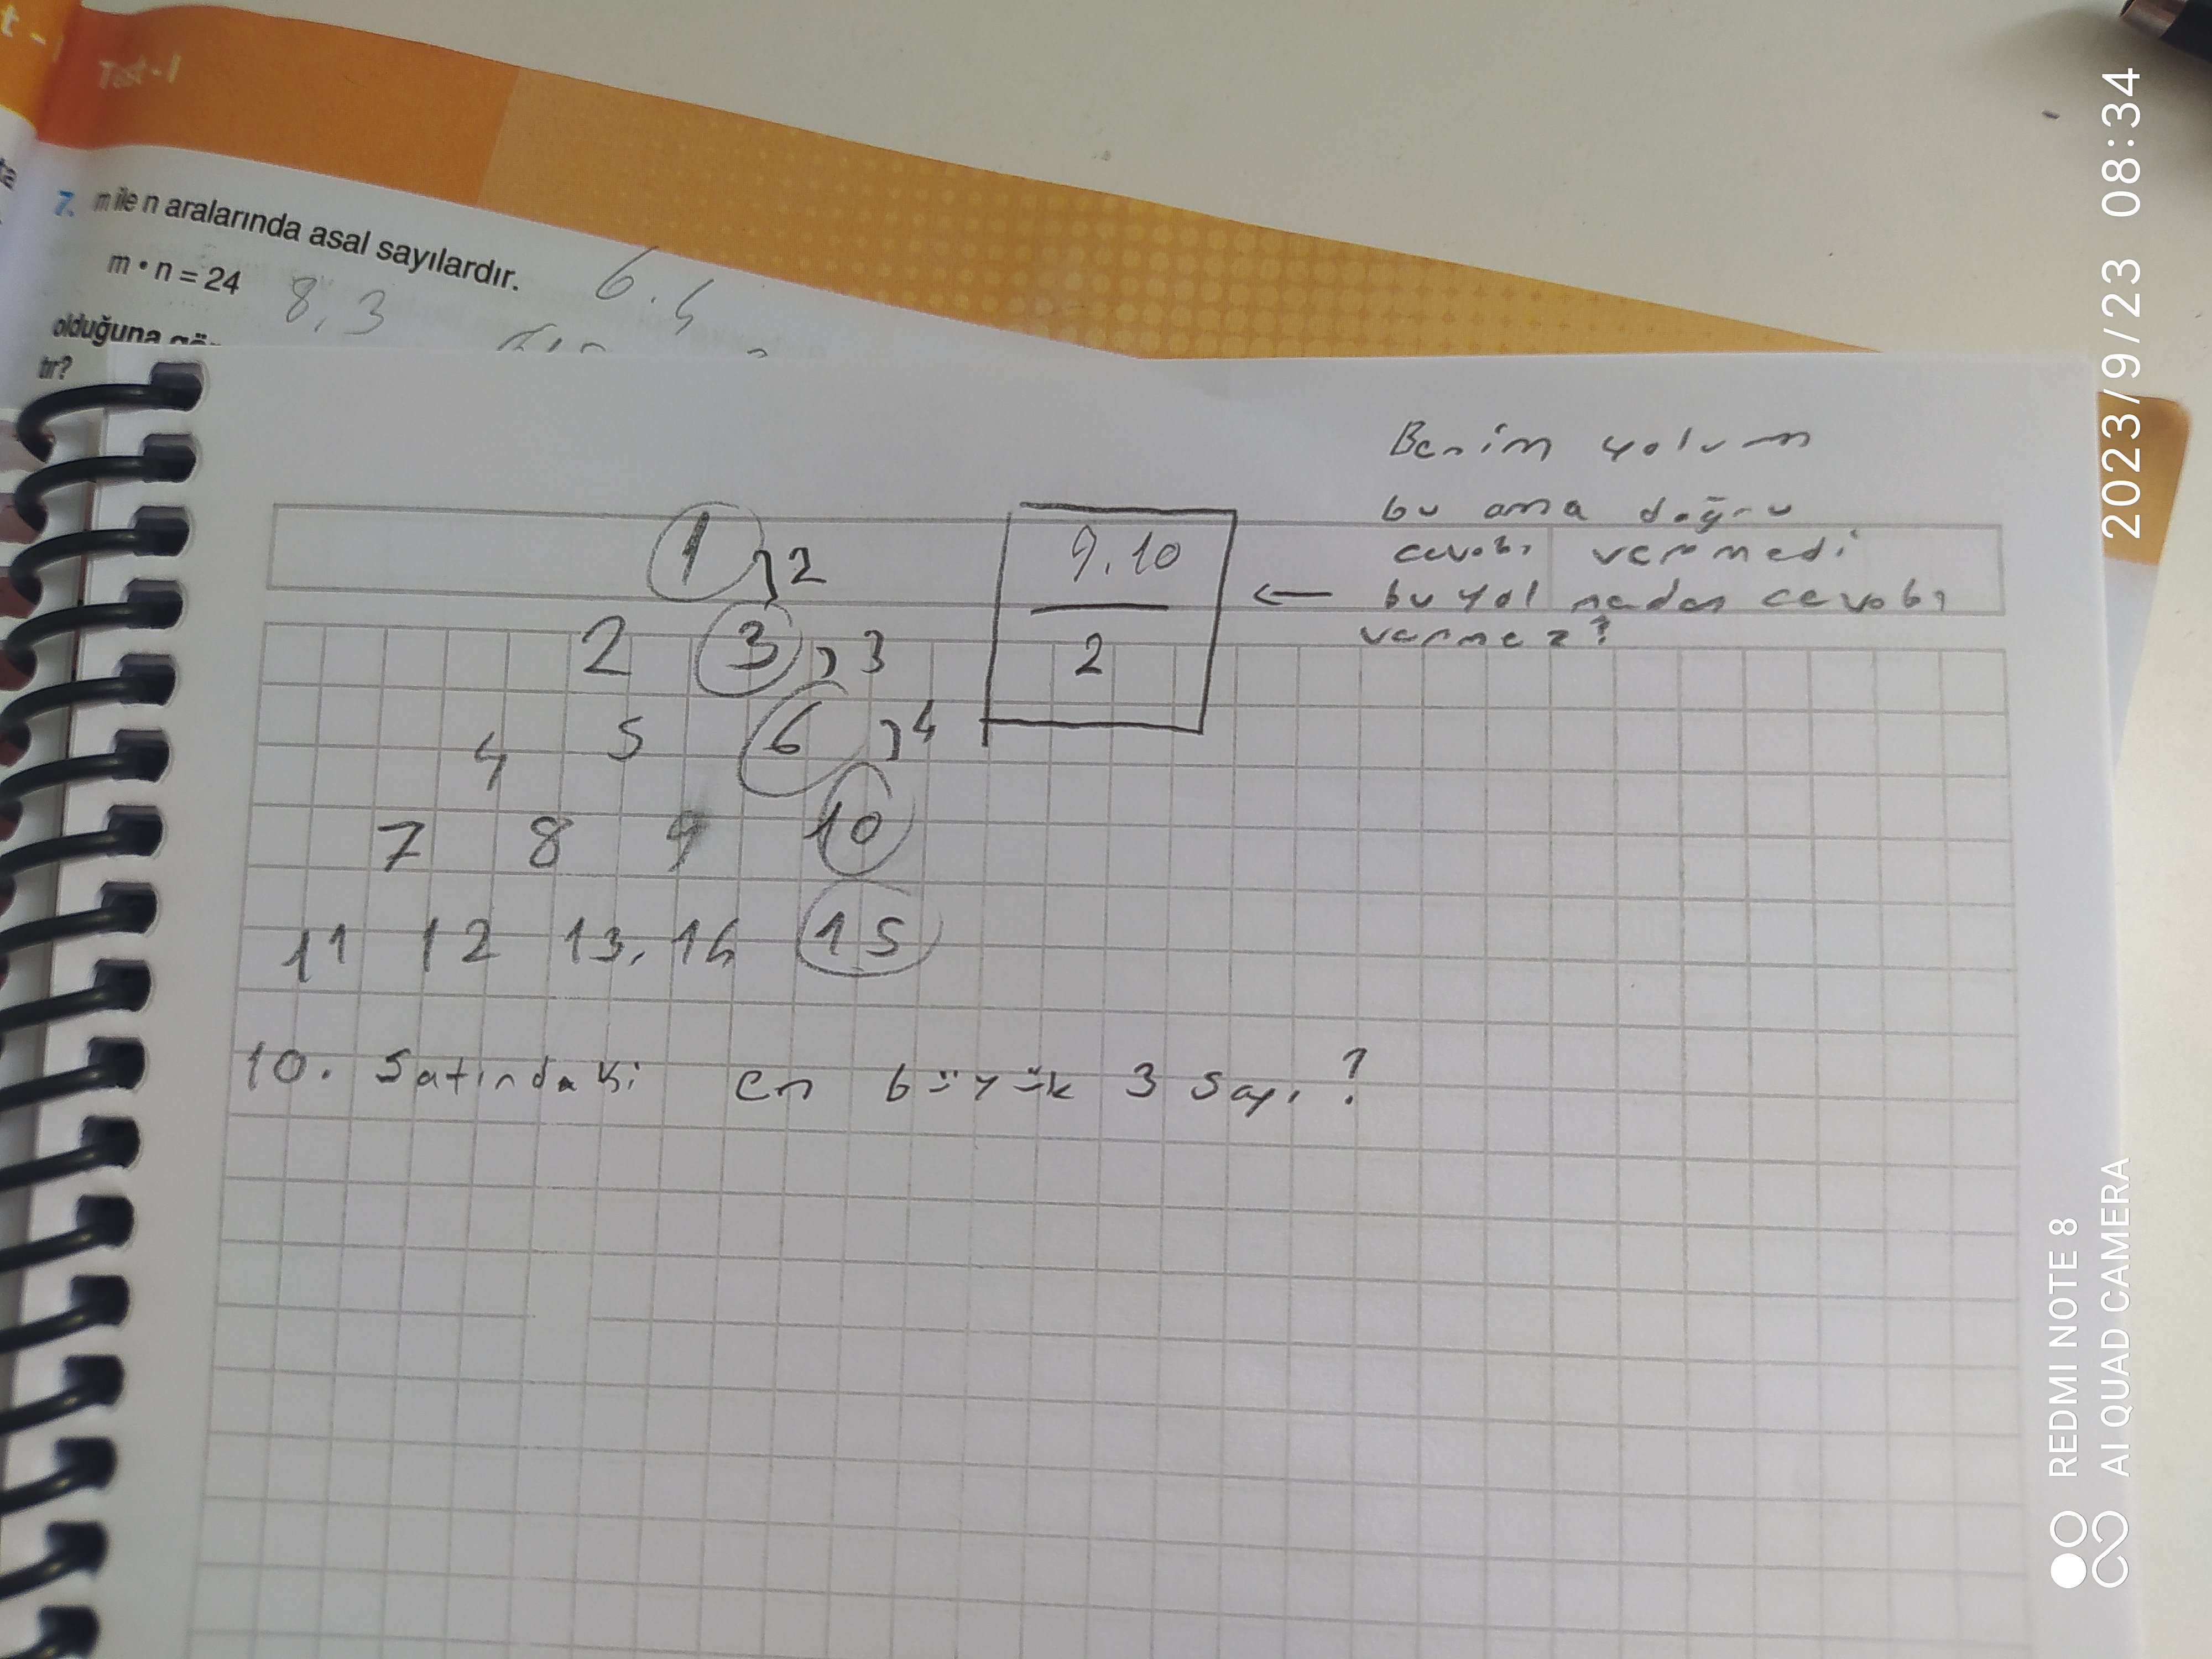 Test-1
7. m ile n aralarında asal sayılardır.
m • n = 24
8, 3
6.4
olduğuna gör
tır?
Benim yolum
bu ama doğru
cevabı vermedi
bu yol neden cevabı
vermez?
←
9.10
2
1 2
2 3 3
4 5 6 4
7 8 9 10
11 12 13, 14 15
10. Satırındaki en büyük 3 sayı?
2023/9/23 08:34
REDMI NOTE 8
AI QUAD CAMERA